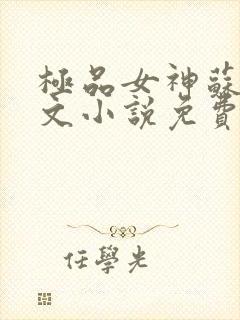 極品女神蘇
文小說免費
任學光